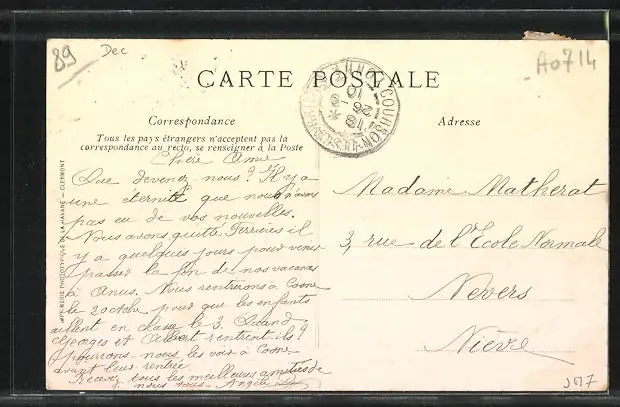 89
Dec
A0714
CARTE POSTALE
Correspondance
Adresse
Tous les pays étrangers n'acceptent pas la
correspondance au recto, se renseigner à la Poste
Chère Amie
Que devenez-nous? Il y a
une eternité que nous n'avons
pas eu de vos nouvelles.
Nous avons quitté il
y a quelques jours pour venir
passer la fin de nos vacances
à Anus. Nous rentrerons à Cosne
le 2 octobre pour que les enfants
aillent en classe le 3. Quand
Georges et Albert rentrent-ils?
pourrons-nous les voir à Cosne
avant leur rentrée
Recevez tous les meilleures amitiés de
nous tous Angèle
Madame Matherat
3, rue de l'Ecole Normale
Nevers
Nièvre
IMPRIMERIE PHOTOTYPIQUE DE LA HAVANE — CLERMONT
COURSON
18
26 - 9
10
YONNE
JM7